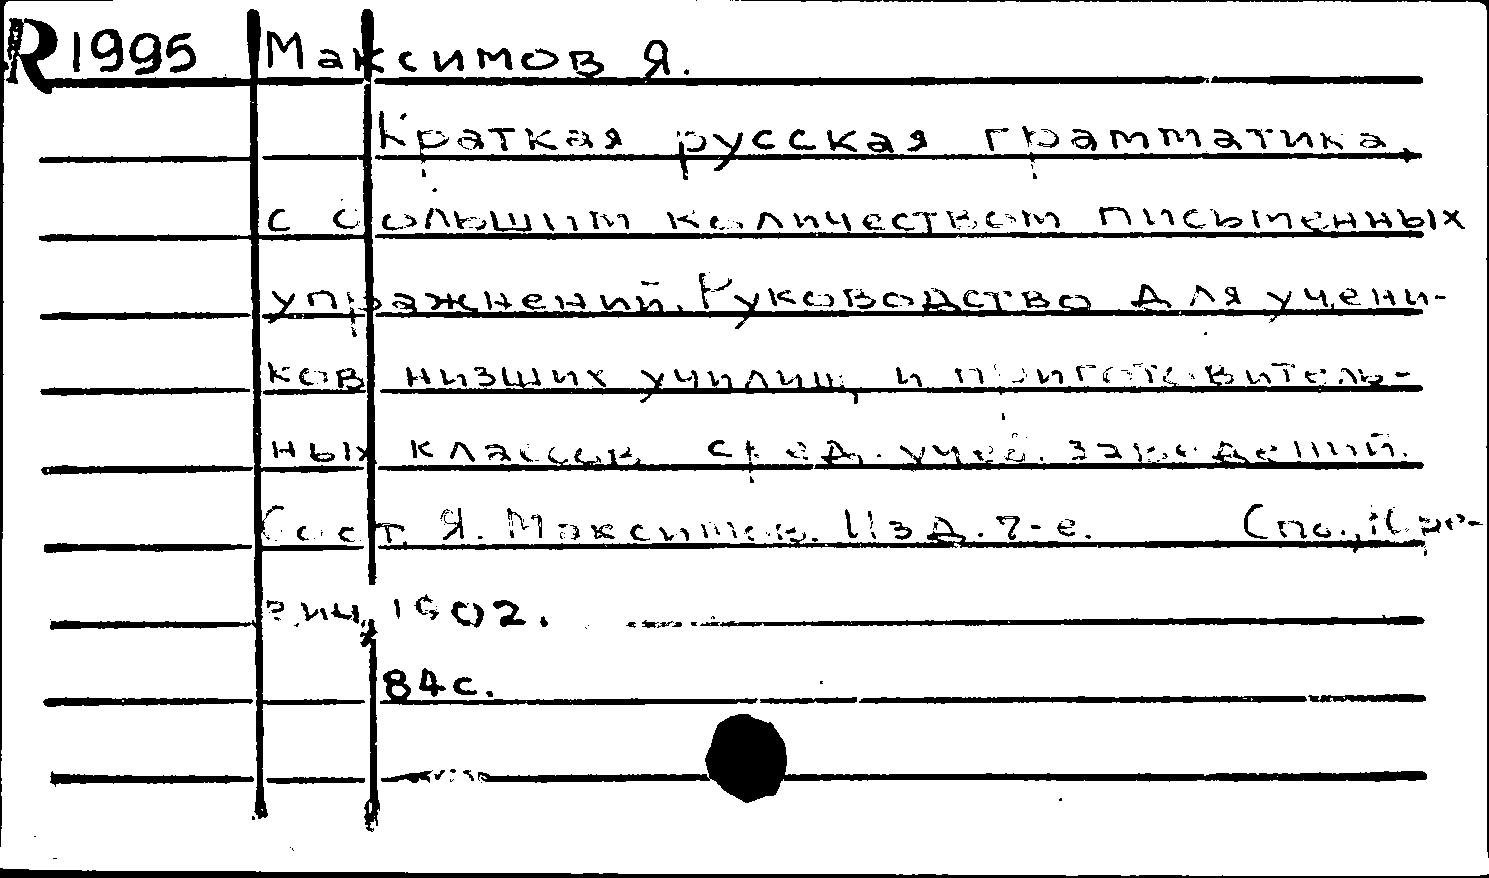 R 1995 Максимов Я.
Краткая русская грамматика,
с большим количеством письменных
упражнений. Руководство для учени-
ков низших училищ и приготовитель-
ных классов сред. учеб. заведений.
Сост. Я. Максимов. Изд. 7-е. Спб.,
1902.
84 с.